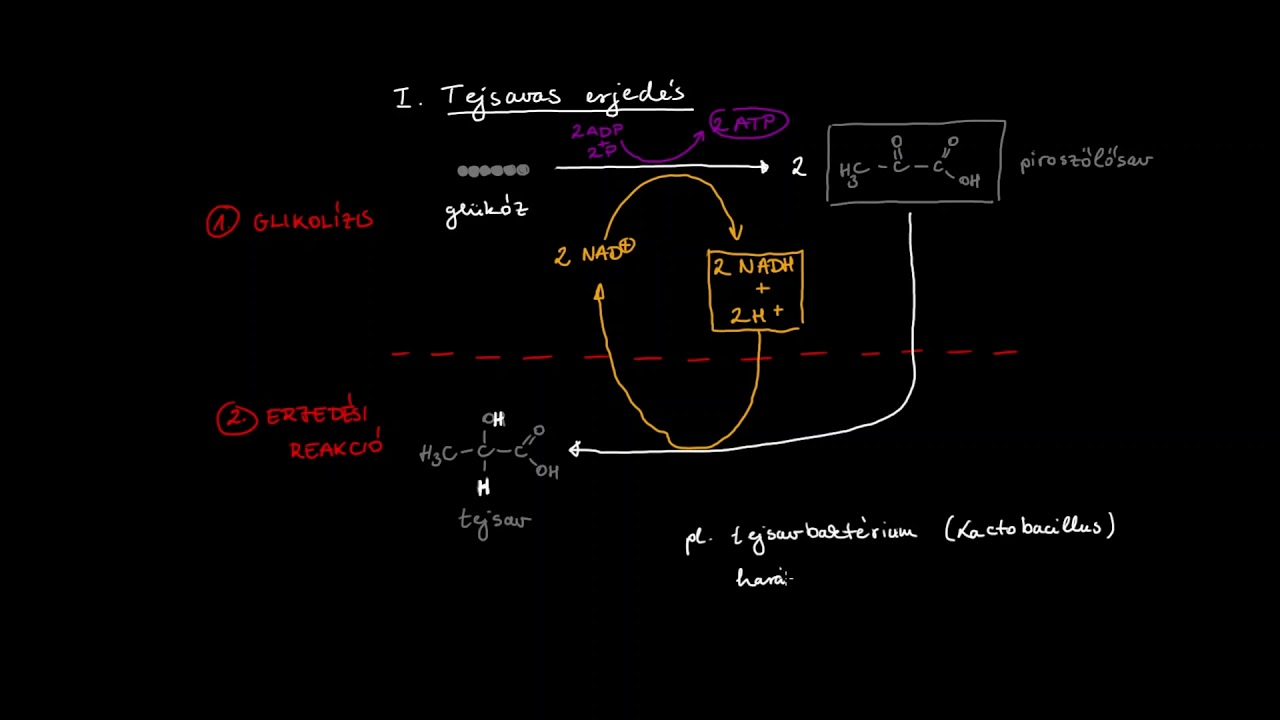 I. Tejsavas erjedés
2 ADP
+
2P
2 ATP
2
H3C - C - C
O
O
OH
piroszőlősav
glükóz
① GLIKOLÍZIS
2 NAD⊕
2 NADH
+
2H+
② ERJEDÉSI
REAKCIÓ
OH
O
H3C - C - C
OH
H
tejsav
pl. tejsavbaktérium (Lactobacillus)